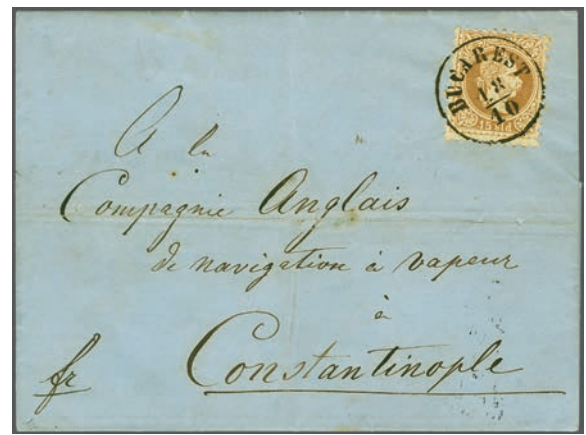 BUCAREST
18
10
15 sld
A la
Compagnie Anglais
de navigation à vapeur
à
Constantinople
fr